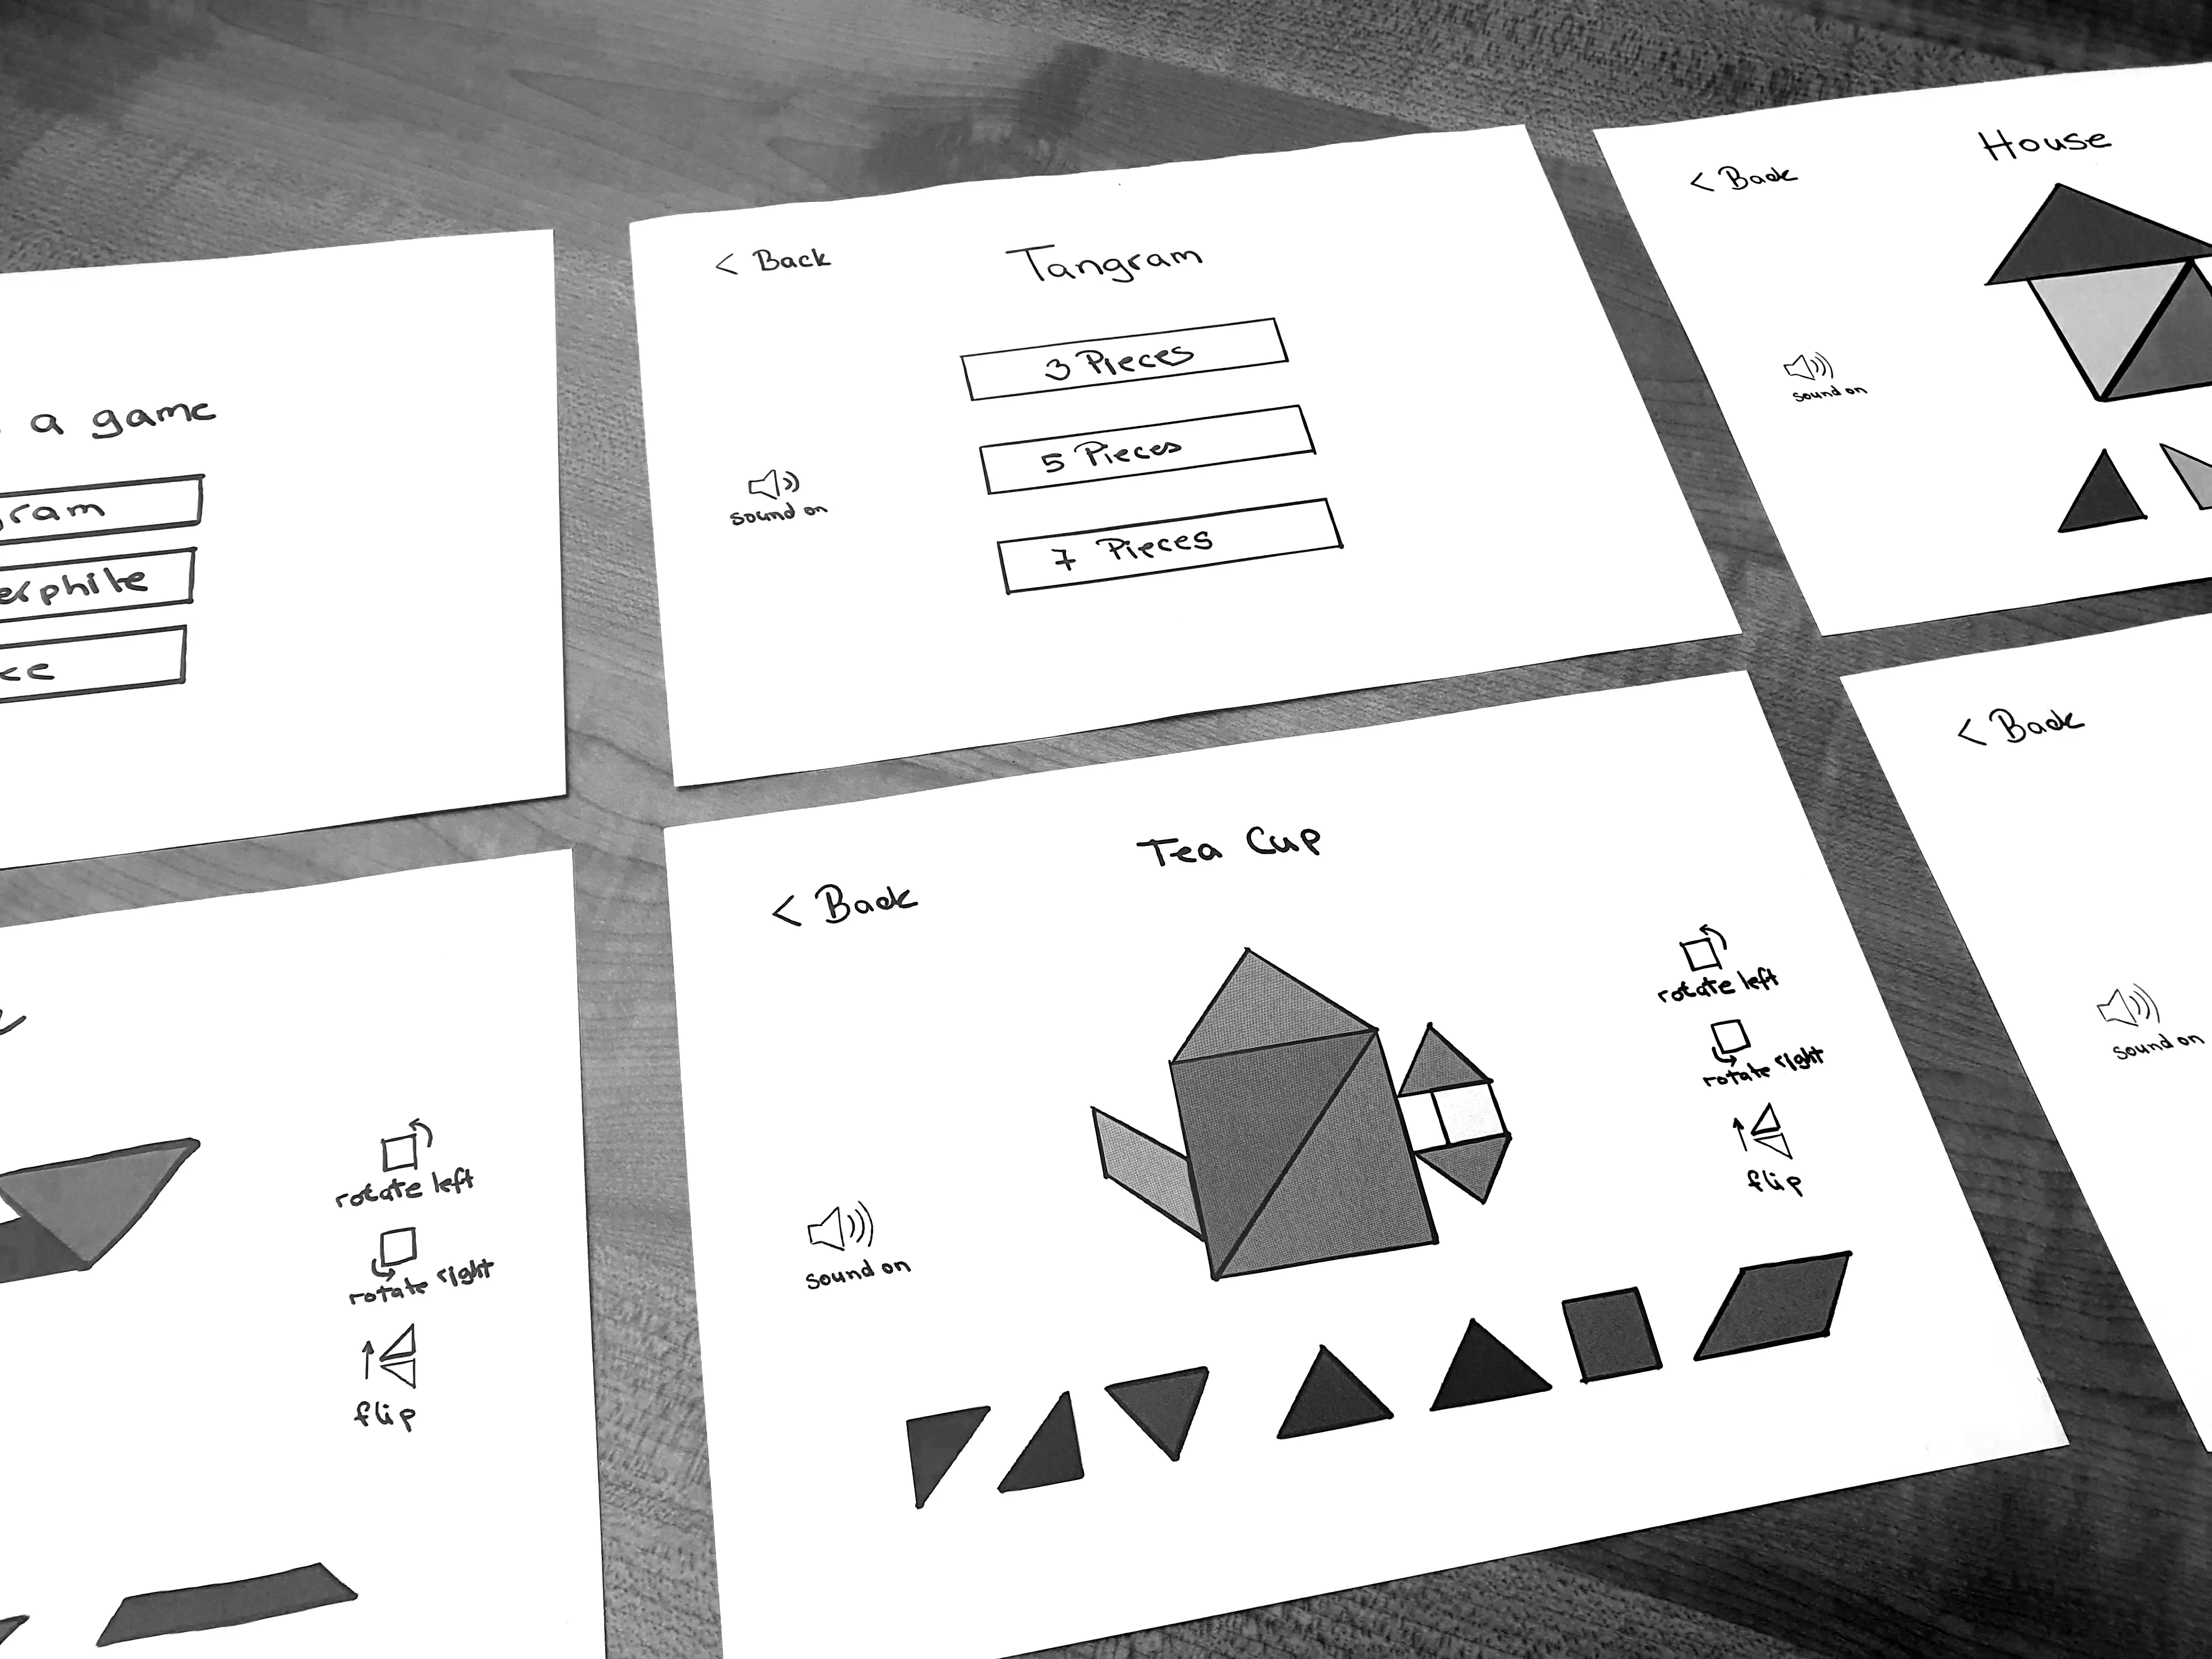 a game
gram
erphite
ce
< Back
Tangram
3 Pieces
5 Pieces
7 Pieces
sound on
< Back
House
sound on
rotate left
rotate right
flip
Tea Cup
< Back
sound on
rotate left
rotate right
flip
< Back
sound on